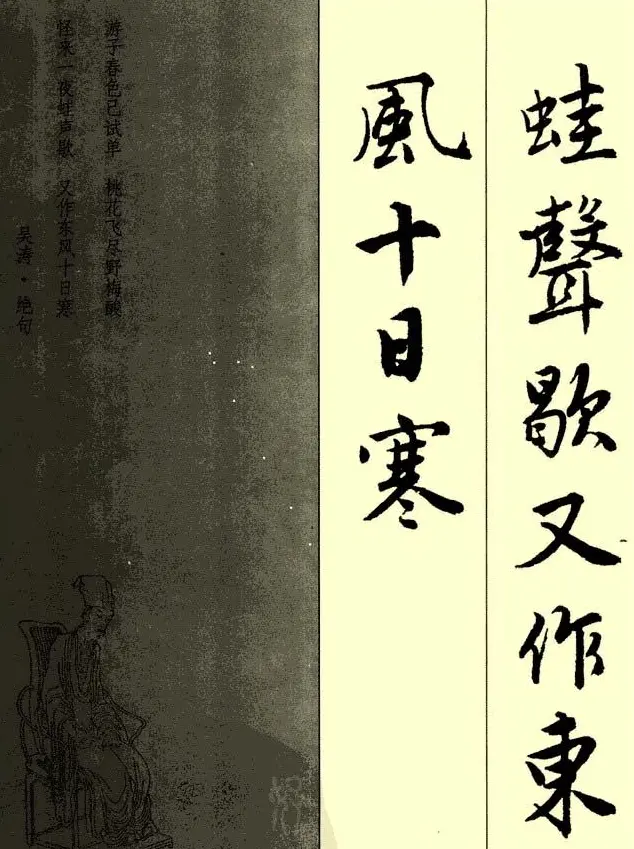 蛙聲歇又作東
風十日寒
游子春色已试单 桃花飞尽野梅酸
怪来一夜蛙声歇 又作东风十日寒
吴涛·绝句